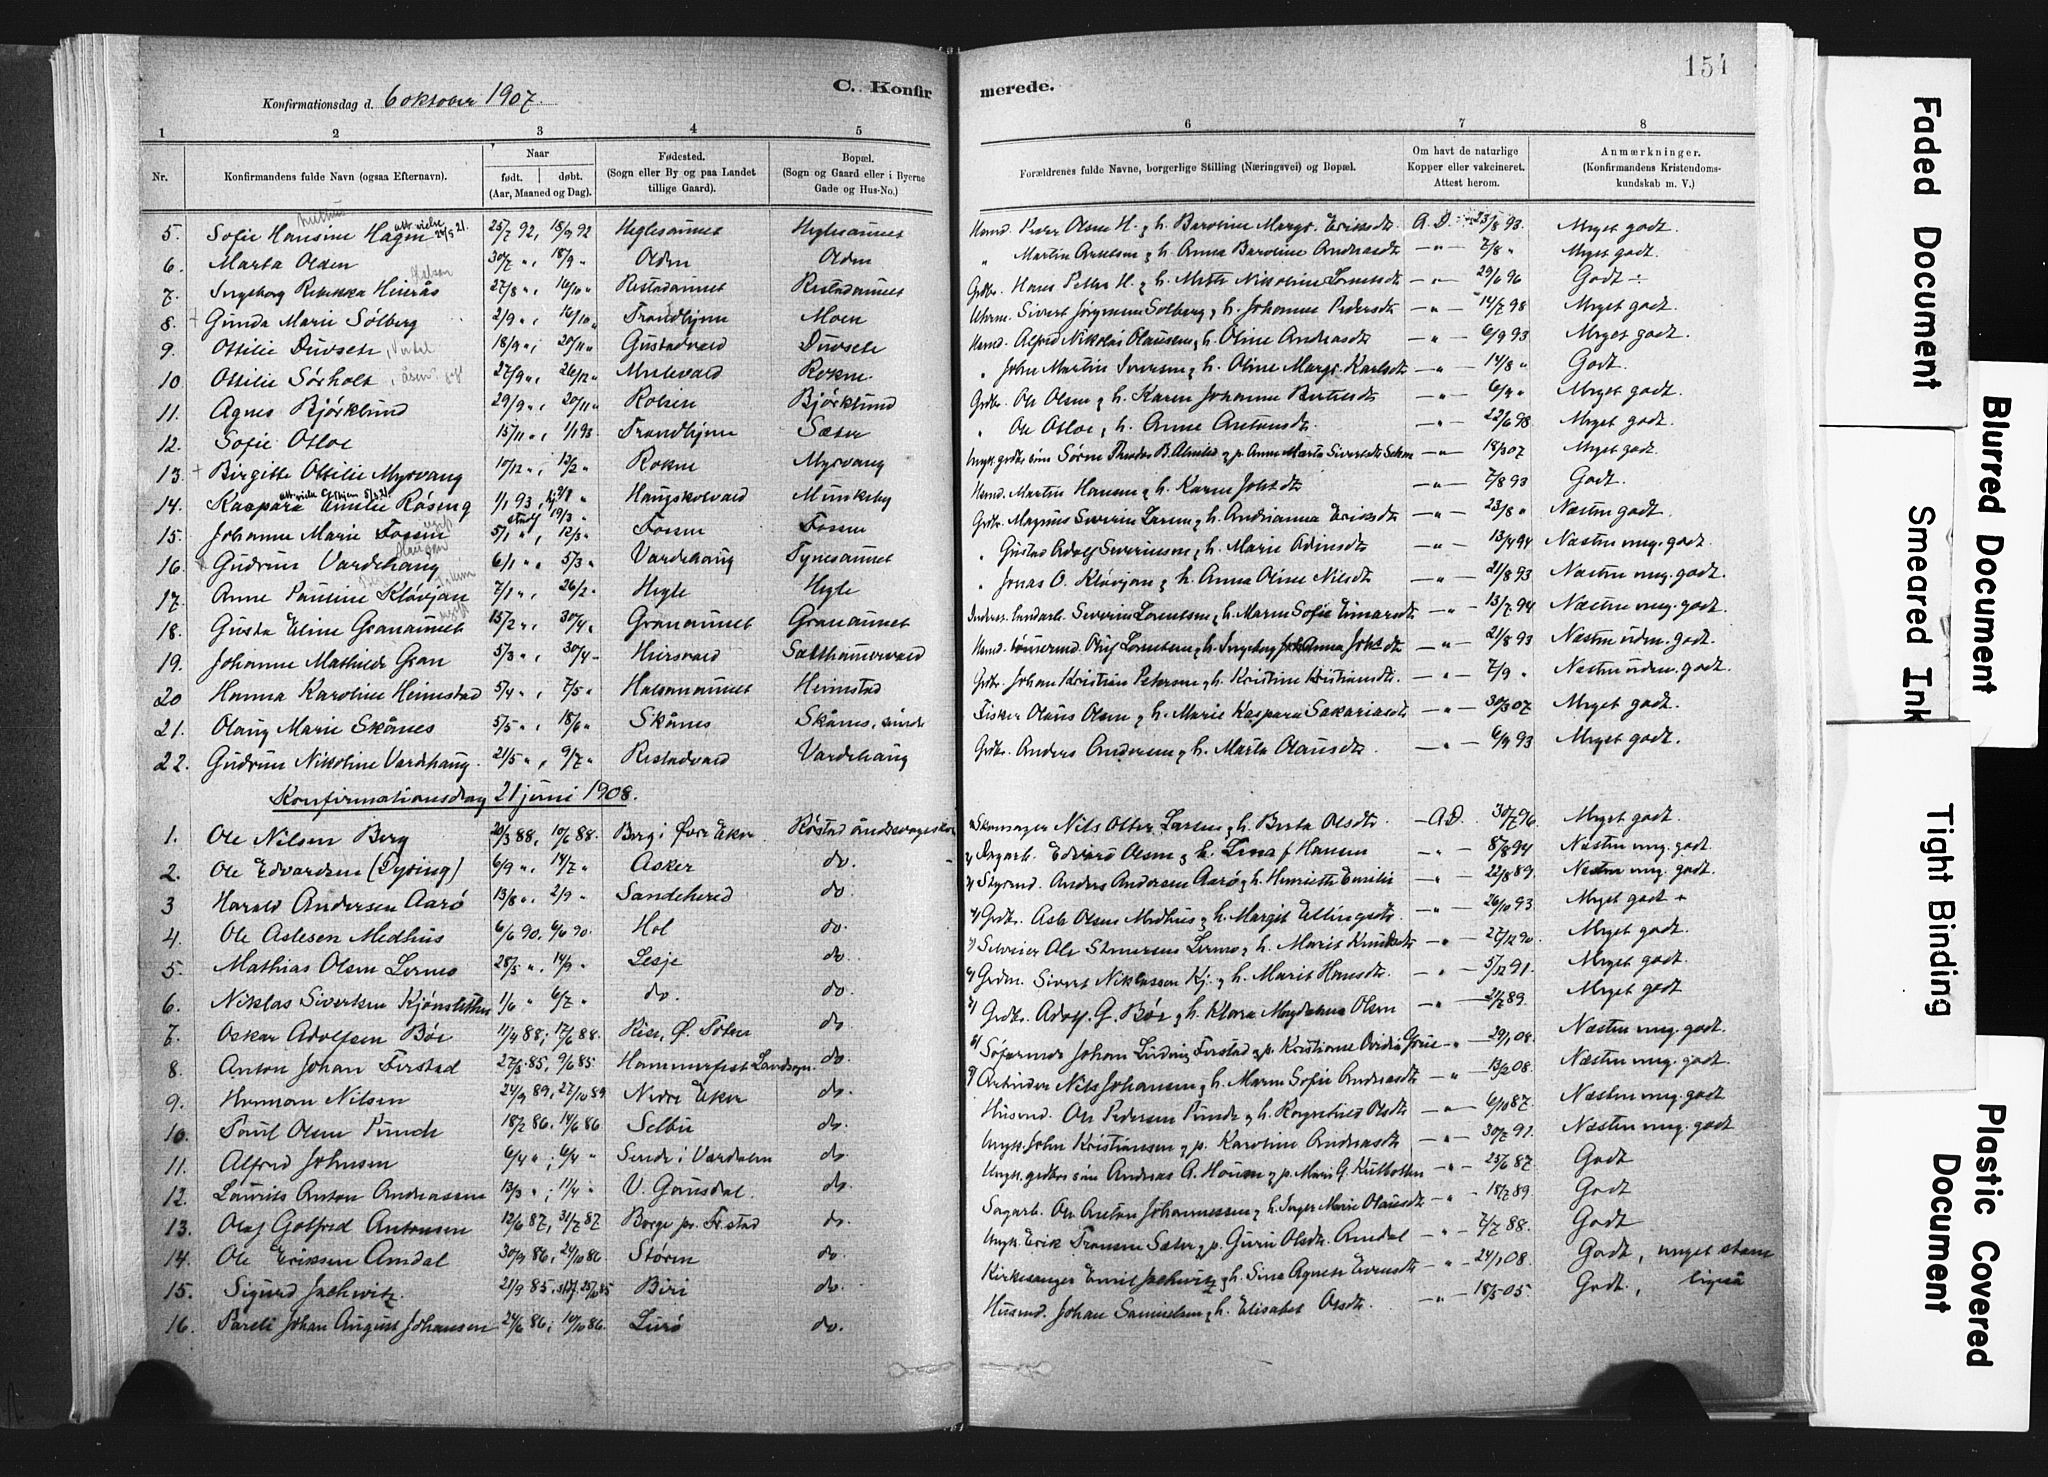 154
C. Konfirmerede.
Konfirmationsdag d. 6 oktober 1907.
1 2 3 4 5 6 7 8
Nr. Konfirmandens fulde Navn (ogsaa Efternavn). Naar født. døbt. (Aar, Maaned og Dag). Fødested. (Sogn eller By og paa Landet tillige Gaard). Bopæl. (Sogn og Gaard eller i Byerne Gade og Hus-No.) Forældrenes fulde Navne, borgerlige Stilling (Næringsvei) og Bopæl. Om havt de naturlige Kopper eller vakcineret. Attest herom. Anmærkninger. (Konfirmandens Kristendomskundskab m. V.)
5. Sofie Hansine Hagen 25/7 92, 18/9 92 Heglesaunet Heglesaunet Peder Olsen H. & h. Baroline Margr. Eriksdt. A.D. 23/8 93. Meget godt.
6. Marta Olden 30/7 ", 18/9 " Olden Olden " Martin Arntsen & h. Anna Baroline Andreasdt. —"— 7/8 " Meget godt.
7. Ingeborg Rebekka Hinrås 27/8 ", 16/10 " Restadaunet Restadaunet Grdbr. Hans Petter H. & h. Mette Nikoline Lorentsdt. —"— 29/6 96 Godt ÷
8. Gunda Marie Solberg 2/9 ", 16/10 " Trondhjem Moen Sivert Jørgensen Solberg & h. Johanna Pedersdt. —"— 14/7 98 Meget godt.
9. Ottilie Duvseth 18/9 ", 20/11 " Gustadvald Duvseth Alfred Nikolai Olausen & h. Oline Andreasdt. —"— 6/9 93 Meget godt.
10. Ottilie Sørholt 27/9 ", 26/12 " Rokne " John Martin Iversen & h. Oline Margr. Karlsdt. —"— 14/8 " Godt.
11. Agnes Bjørklund 29/9 ", 20/11 " Rolsen Bjørklund Grdbr. Ole Olsen & h. Karen Johanna —"— 6/9 " Meget godt.
12. Sofie Osloe 15/11 ", 1/1 93 Trondhjem Sæter " Ole Osloe & h. Anne Antonsdt. —"— 22/6 98 Meget godt.
13. Birgitte Ottilie Myrvang 10/12 ", 12/2 " Rokne Myrvang Ungk. grdbr. søn Sørn Theodor B. Almlid & p. Anne Marta Sivertsdt. —"— 18/3 07 Meget godt.
14. Kaspara Emilie Røseng 1/1 93, Haugskotvald Munkeby Martin Hansen & h. Karen Johsdt. —"— 7/8 93 Godt.
15. Johanne Marie Fossen 5/1 ", 12/3 " Fossen Fossen Grdbr. Magnus Severin Larsen & h. Andrianna Eriksdt. —"— 23/8 " Næsten godt.
16. Gudrun Vardehaug 6/1 ", 5/3 " Vardehaug Tynesaunet " Gustav Adolf Severinsen & h. Marie Odinsdt. —"— 13/4 94 Næsten meg. godt.
17. Anne Pauline Kløvjan 7/1 ", 26/2 " Hegle Hegle " Jonas O. Kløvjan & h. Anna Oline Nilsdt. —"— 21/8 93 Næsten meg. godt.
18. Gusta Eline Granaunet 15/2 ", 30/4 " Granaunet Granaunet Severin Lorentsen & h. Maren Sofie Einarsdt. —"— 13/7 94 Næsten meg. godt.
19. Johanne Mathilde Gran 5/3 ", 30/4 " Salthamervald Oluf Lorentsen & h. Ingeborg Anna Johsdt. —"— 21/8 93 Næsten udm. godt.
20 Hanna Karoline Heimstad 5/4 ", 7/5 " Halsanaunet Heimstad Grdbr. Johan Kristian Petersen & h. Kristine Kristiansdt. —"— 7/9 " Næsten udm. godt.
21. Olaug Marie Skånes 5/5 ", 18/6 " Skånes Skånes, Fisker Olaus Olsen & h. Marie Kaspara Sakariasdt. —"— 30/3 07 Meget godt.
22. Gudrun Nikoline Vardehaug. 21/5 ", 9/7 " Restadvald Vardehaug Grdbr. Anders Andersen & h. Marta Olausdt. —"— 6/9 93 Meget godt.
Konfirmationsdag 21 juni 1908.
1. Ole Nilsen Berg 20/3 88, 10/6 88. Berg i Øvre Eker Røstad åndssvageskole Nils Otter Larsen & h. Berta Olsdt. —A.D. 30/7 96 Meget godt.
2. Ole Edvardsen (Dyring) 6/9 ", 14/7 " Asker do. Dagarb. Edvard Olsen & h. Lina f. Hansen —"— 8/8 94 Næsten meg. godt.
3 Harald Andersen Aarø 13/8 ", 2/9 " Sandehered do. Styrmd. Anders Andersen Aarø & h. Henriette Emilie —"— 22/8 89 Næsten meg. godt.
4. Ole Aslesen Medhus 6/6 90, 6/9 90. Hol do. Grdbr. Asle Olsen Medhus & h. Margit Ellingsdt. —"— 26/10 93. Meget godt +
5. Mathias Olsen Lerum 28/5 ", 14/9 " Lesje do. Ole Simensen & h. Marit Knudsdt. —"— 27/12 90. Meget godt.
6. Niklas Sivertsen Kjønsletten 1/6 " 6/7 " do. do. Grdm. Sivert Niklassen Kj. & h. Marit Hansdt. —"— 5/12 91. Meget godt.
7. Oskar Adolfsen Bøe 11/4 88, 17/6 88. Kise, Ø. Toten do. Grdbr. Adolf G. Bøe & h. Klara Magdalena Olsen —"— 21/7 89. Meget godt
8. Anton Johan Ferstad 27/5 85, 9/6 85 Hammerfest Landsogn. do. Johan Ludvig Ferstad & p. Kristiane Ovidia Grue —"— 29/1 08. Næsten meg. godt.
9. Herman Nilsen 24/9 89, 27/10 89 Nedre Eker do. Arbeider Nils Johansen & h. Maren Sofie Andreasdt. —"— 13/2 08. Næsten meg. godt.
10. Olsen 18/2 86, 14/6 86 Selbu do. Husmd. Ole Pedersen & h. Olsdt. —"— 6/10 87. Næsten meg. godt
11. Alfred Johnsen 6/4 ", 6/4 " Sende i Værdalen do. Ungk. John Kristiansen & p. Karoline Andreasdt. —"— 30/7 91. Næsten meg. godt
12. Laurits Anton Andreassen 13/3 ", 11/4 " V. Gausdal. do. Ungk. grdbrs søn Andreas A. & p. Mari G. —"— 25/6 87. Godt
13. Olaf Gotfred Antonsen 12/6 87, 31/7 87 Borge pr. Fr.stad do. Sagarb. Ole Anton Johannessen & h. Inger Marie Olausdt. —"— 18/7 89. Godt
14. Ole Eriksen Amdal 30/9 86, 24/10 86 Støren do. Ungk. Erik Fransen Sæter & p. Guru Olsdt. Amdal —"— 7/7 88. Godt
15. Sigurd Jachwitz. 21/9 85, 25/10 85 Biri do. Kirkesanger Emil Jachwitz & h. Sina Agnete Evensdt. —"— 24/1 08. Godt, meget
16. Pareli Johan August Johansen 24/6 86, 10/10 86. Lurø do. Husmd. Johan Samuelsen & h. Elisabet Olsdt. —"— 18/5 05. Godt,
Faded Document
Blurred Document
Smeared Ink
Tight Binding
Plastic Covered Document